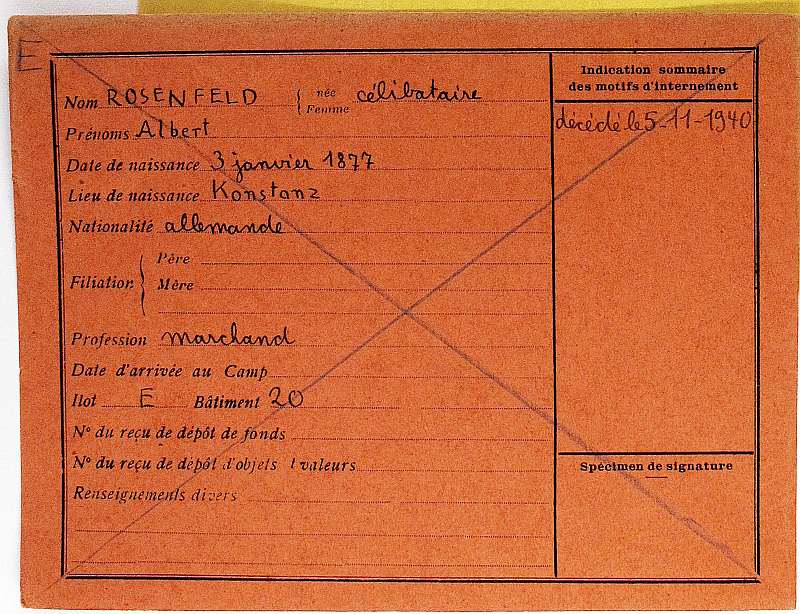 E
Nom ROSENFELD née célibataire
Femme
Prénoms Albert
Date de naissance 3 janvier 1877
Lieu de naissance Konstanz
Nationalité allemande
Filiation
Père
Mère
Profession marchand
Date d'arrivée au Camp
Ilot E Bâtiment 20
Nº du reçu de dépôt de fonds
Nº du reçu de dépôt d'objets valeurs
Renseignements divers
Indication sommaire
des motifs d'internement
décédé le 5-11-1940
Spécimen de signature